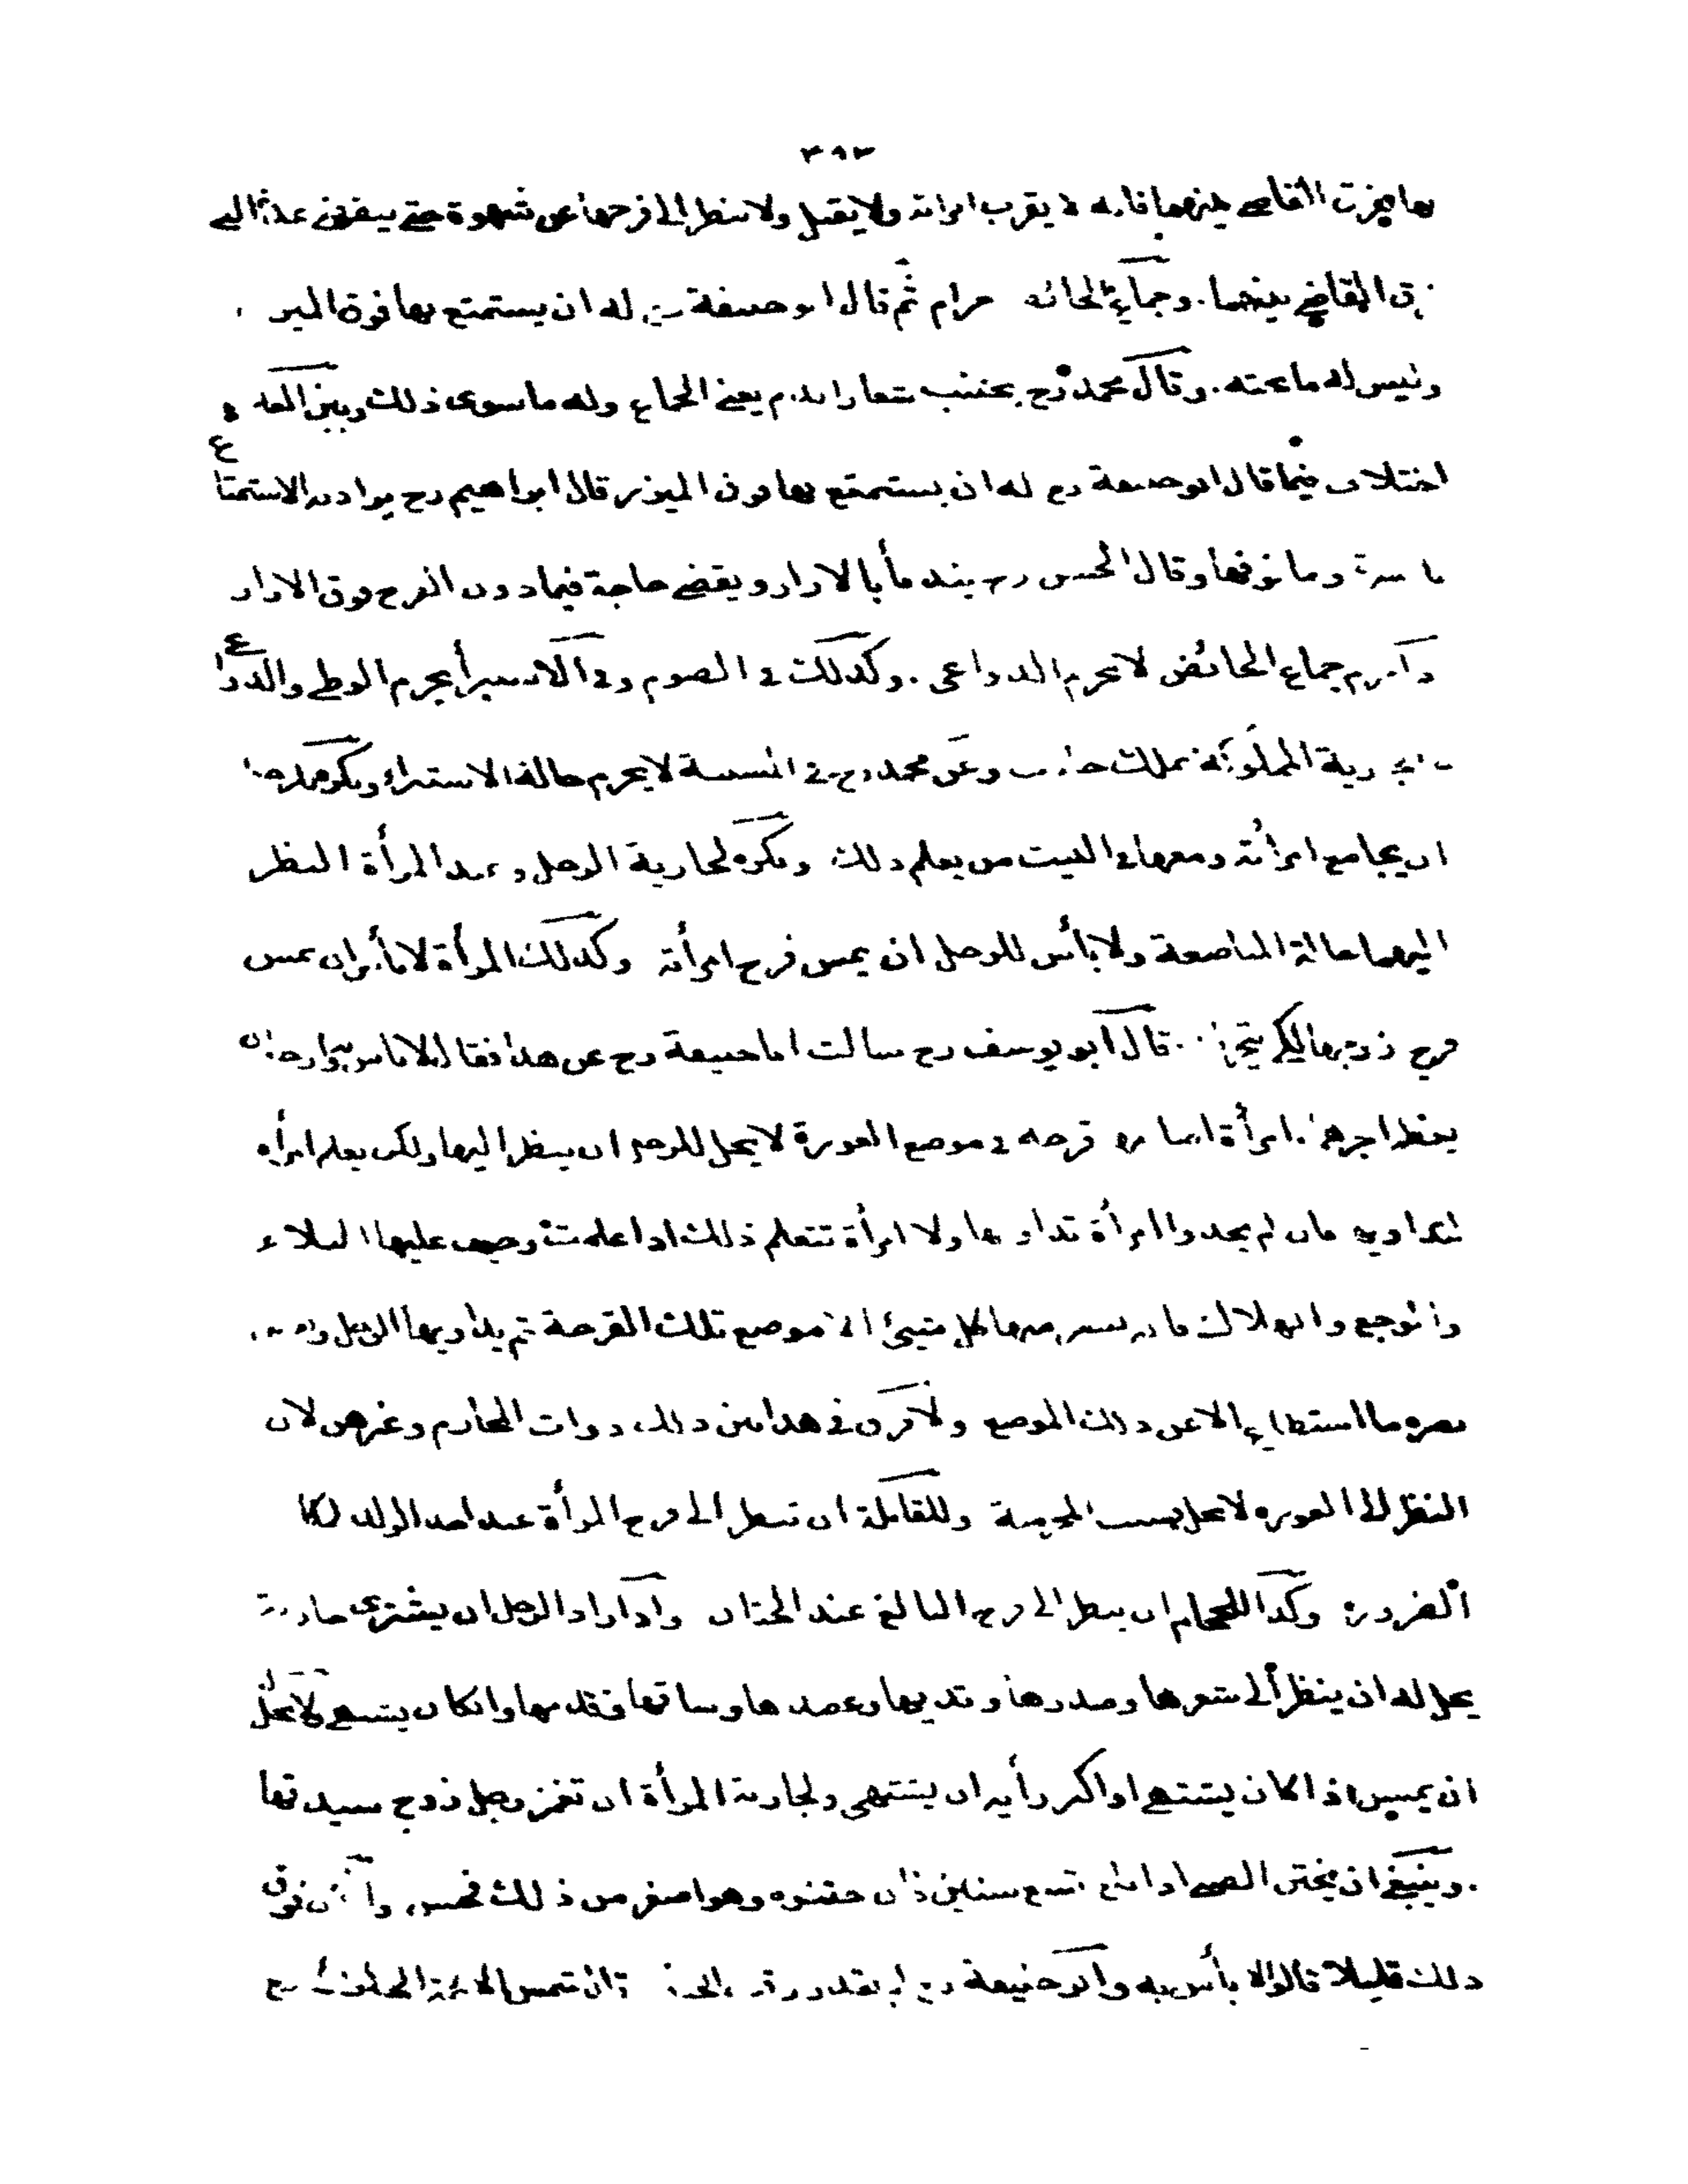 ٣٩٣
القاضي بينهما فانه لا يقرب امرأته ولا يقبل ولا ينظر الى فرجها عن شهوة حتى
القاضي بينهما . وجماع الحائض حرام ثم قال ابو حنيفة له ان يستمتع بها فوق الميزر
وليس له ما تحته . وقال محمد رح يجتنب شعار الدم يعني الجماع وله ما سوى ذلك وبين
اختلاف فيما قال ابو حنيفة رح له ان يستمتع بها فوق الميزر قال ابراهيم رح يراد به الاستمتاع
بالسرة وما فوقها وقال الحسن رح بالازار ويقضي حاجته فيما دون الفرج فوق الازار
جماع الحائض لا يحرم الدواعي . وكذلك في الصوم وفي الاستبرأ يحرم الوطي والدواعي
وعن محمد رح في المسبية لا يحرم حالة الاستبراء ويكره للرجل
ان يجامع امرأته ومعهما في البيت من يعلم ذلك ويكره لجارية الرجل وعبد المرأة النظر
اليهما حالة المباضعة ولا بأس للرجل ان يمس فرج امرأته وكذلك المرأة لا بأس ان تمس
فرج زوجها لكي يتحرك . قال ابو يوسف رح سالت ابا حنيفة رح عن هذا فقال لا باس به وارجو ان
يعظم اجرهما . امرأة اصابها قرحه في موضع العورة لا يحل للرجل ان ينظر اليها ولكن يعلم امرأة
لتداويها فان لم يجدوا امرأة تداويها ولا امرأة تتعلم ذلك اذا علمت وخيف عليها البلاء
والوجع والهلاك فانه يستر منها كل شيئ الا موضع تلك القرحة ثم يداويها الرجل
بصره ما استطاع الا عن ذلك الموضع ولا فرق في هذا بين ذلك ذوات المحارم وغيرهن لان
النظر الى العورة لا يحل بسبب المحرمية وللقابلة ان تنظر الى فرج المرأة عند اخذ الولد لمكا
الضرورة وكذا للحجام ان ينظر الى فرج البالغ عند الختان واذا اراد الرجل ان يشتري جارية
يحل له ان ينظر الى شعرها وصدرها وثديها وعضدها وساقها وقدمها وان كان يشتهي لا يحل
ان يمس اذا كان يشتهي او اكبر رأيه ان يشتهي ولجارية المرأة ان تغمز رجل زوج سيدتها
. وينبغي ان يختن الصبي اذا بلغ تسع سنين فان ختنوه وهو اصغر من ذلك فحسن وان كان فوق
ذلك قليلا قالوا لا بأس به وابو حنيفة رح لم يقدر وقت الختان